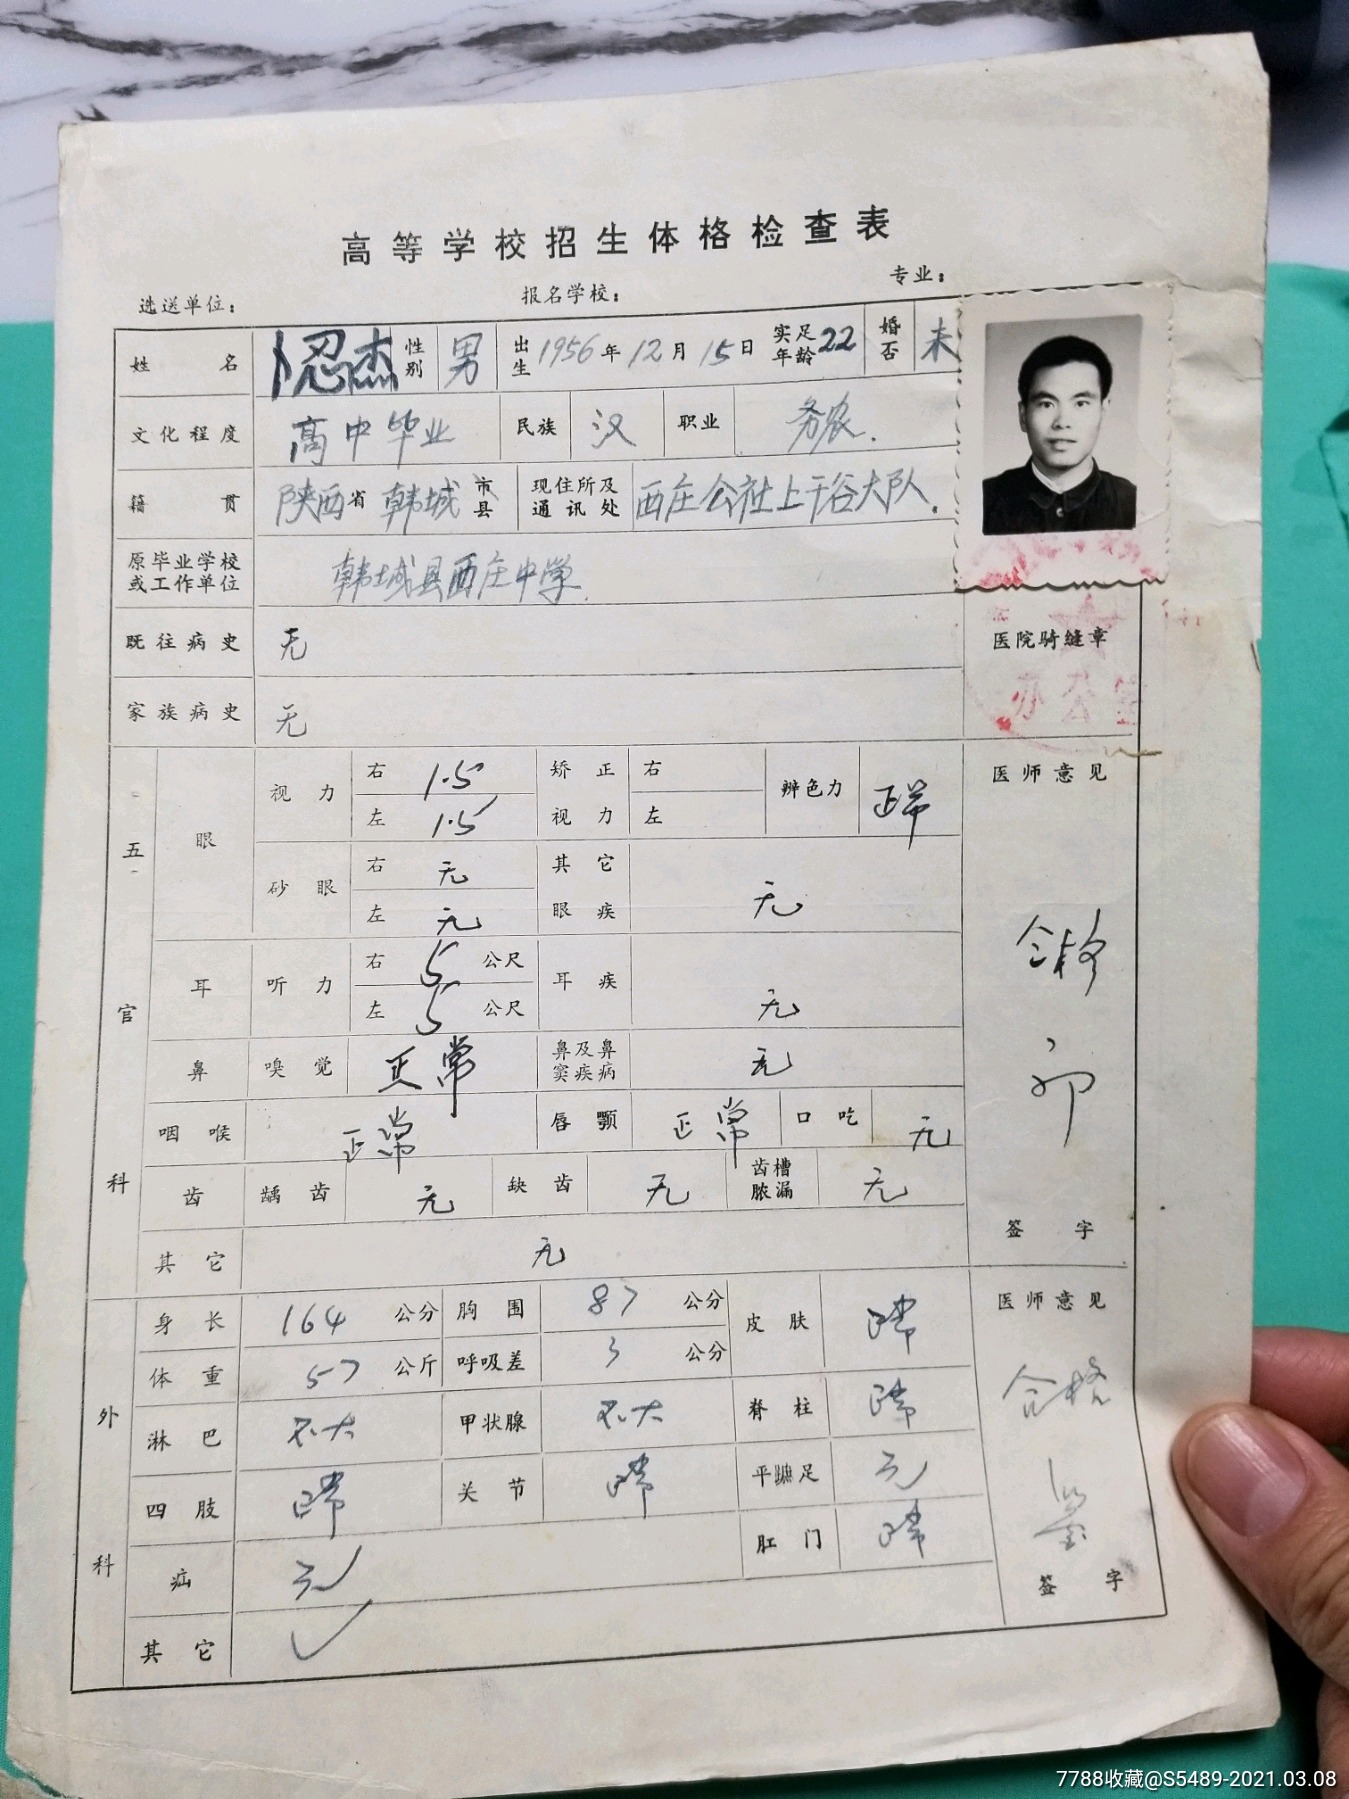 高等学校招生体格检查表
选送单位： 报名学校： 专业：
姓名 卜忍杰 性别 男 出生 1956年12月15日 实足年龄 22 婚否 未
文化程度 高中毕业 民族 汉 职业 务农.
籍贯 陕西省 韩城 市县 现住所及通讯处 西庄公社上干谷大队.
原毕业学校或工作单位 韩城县西庄中学.
既往病史 无
医院骑缝章
家族病史 无
办公室
五官科
眼 视力 右 1.5 左 1.5 矫正视力 右 左 辨色力 正常
医师意见
砂眼 右 无 左 无 其它眼疾 无
合格
耳 听力 右 5 公尺 左 5 公尺 耳疾 无
鼻 嗅觉 正常 鼻及鼻窦疾病 无
咽喉 正常 唇颚 正常 口吃 无
齿 龋齿 无 缺齿 无 齿槽脓漏 无
签字
其它 无
外科
身长 164 公分 胸围 87 公分 皮肤 正常
医师意见
体重 57 公斤 呼吸差 3 公分
合格
淋巴 不大 甲状腺 不大 脊柱 正常
四肢 正常 关节 正常 平蹠足 无
肛门 正常
疝 无
签字
其它
7788收藏@S5489-2021.03.08